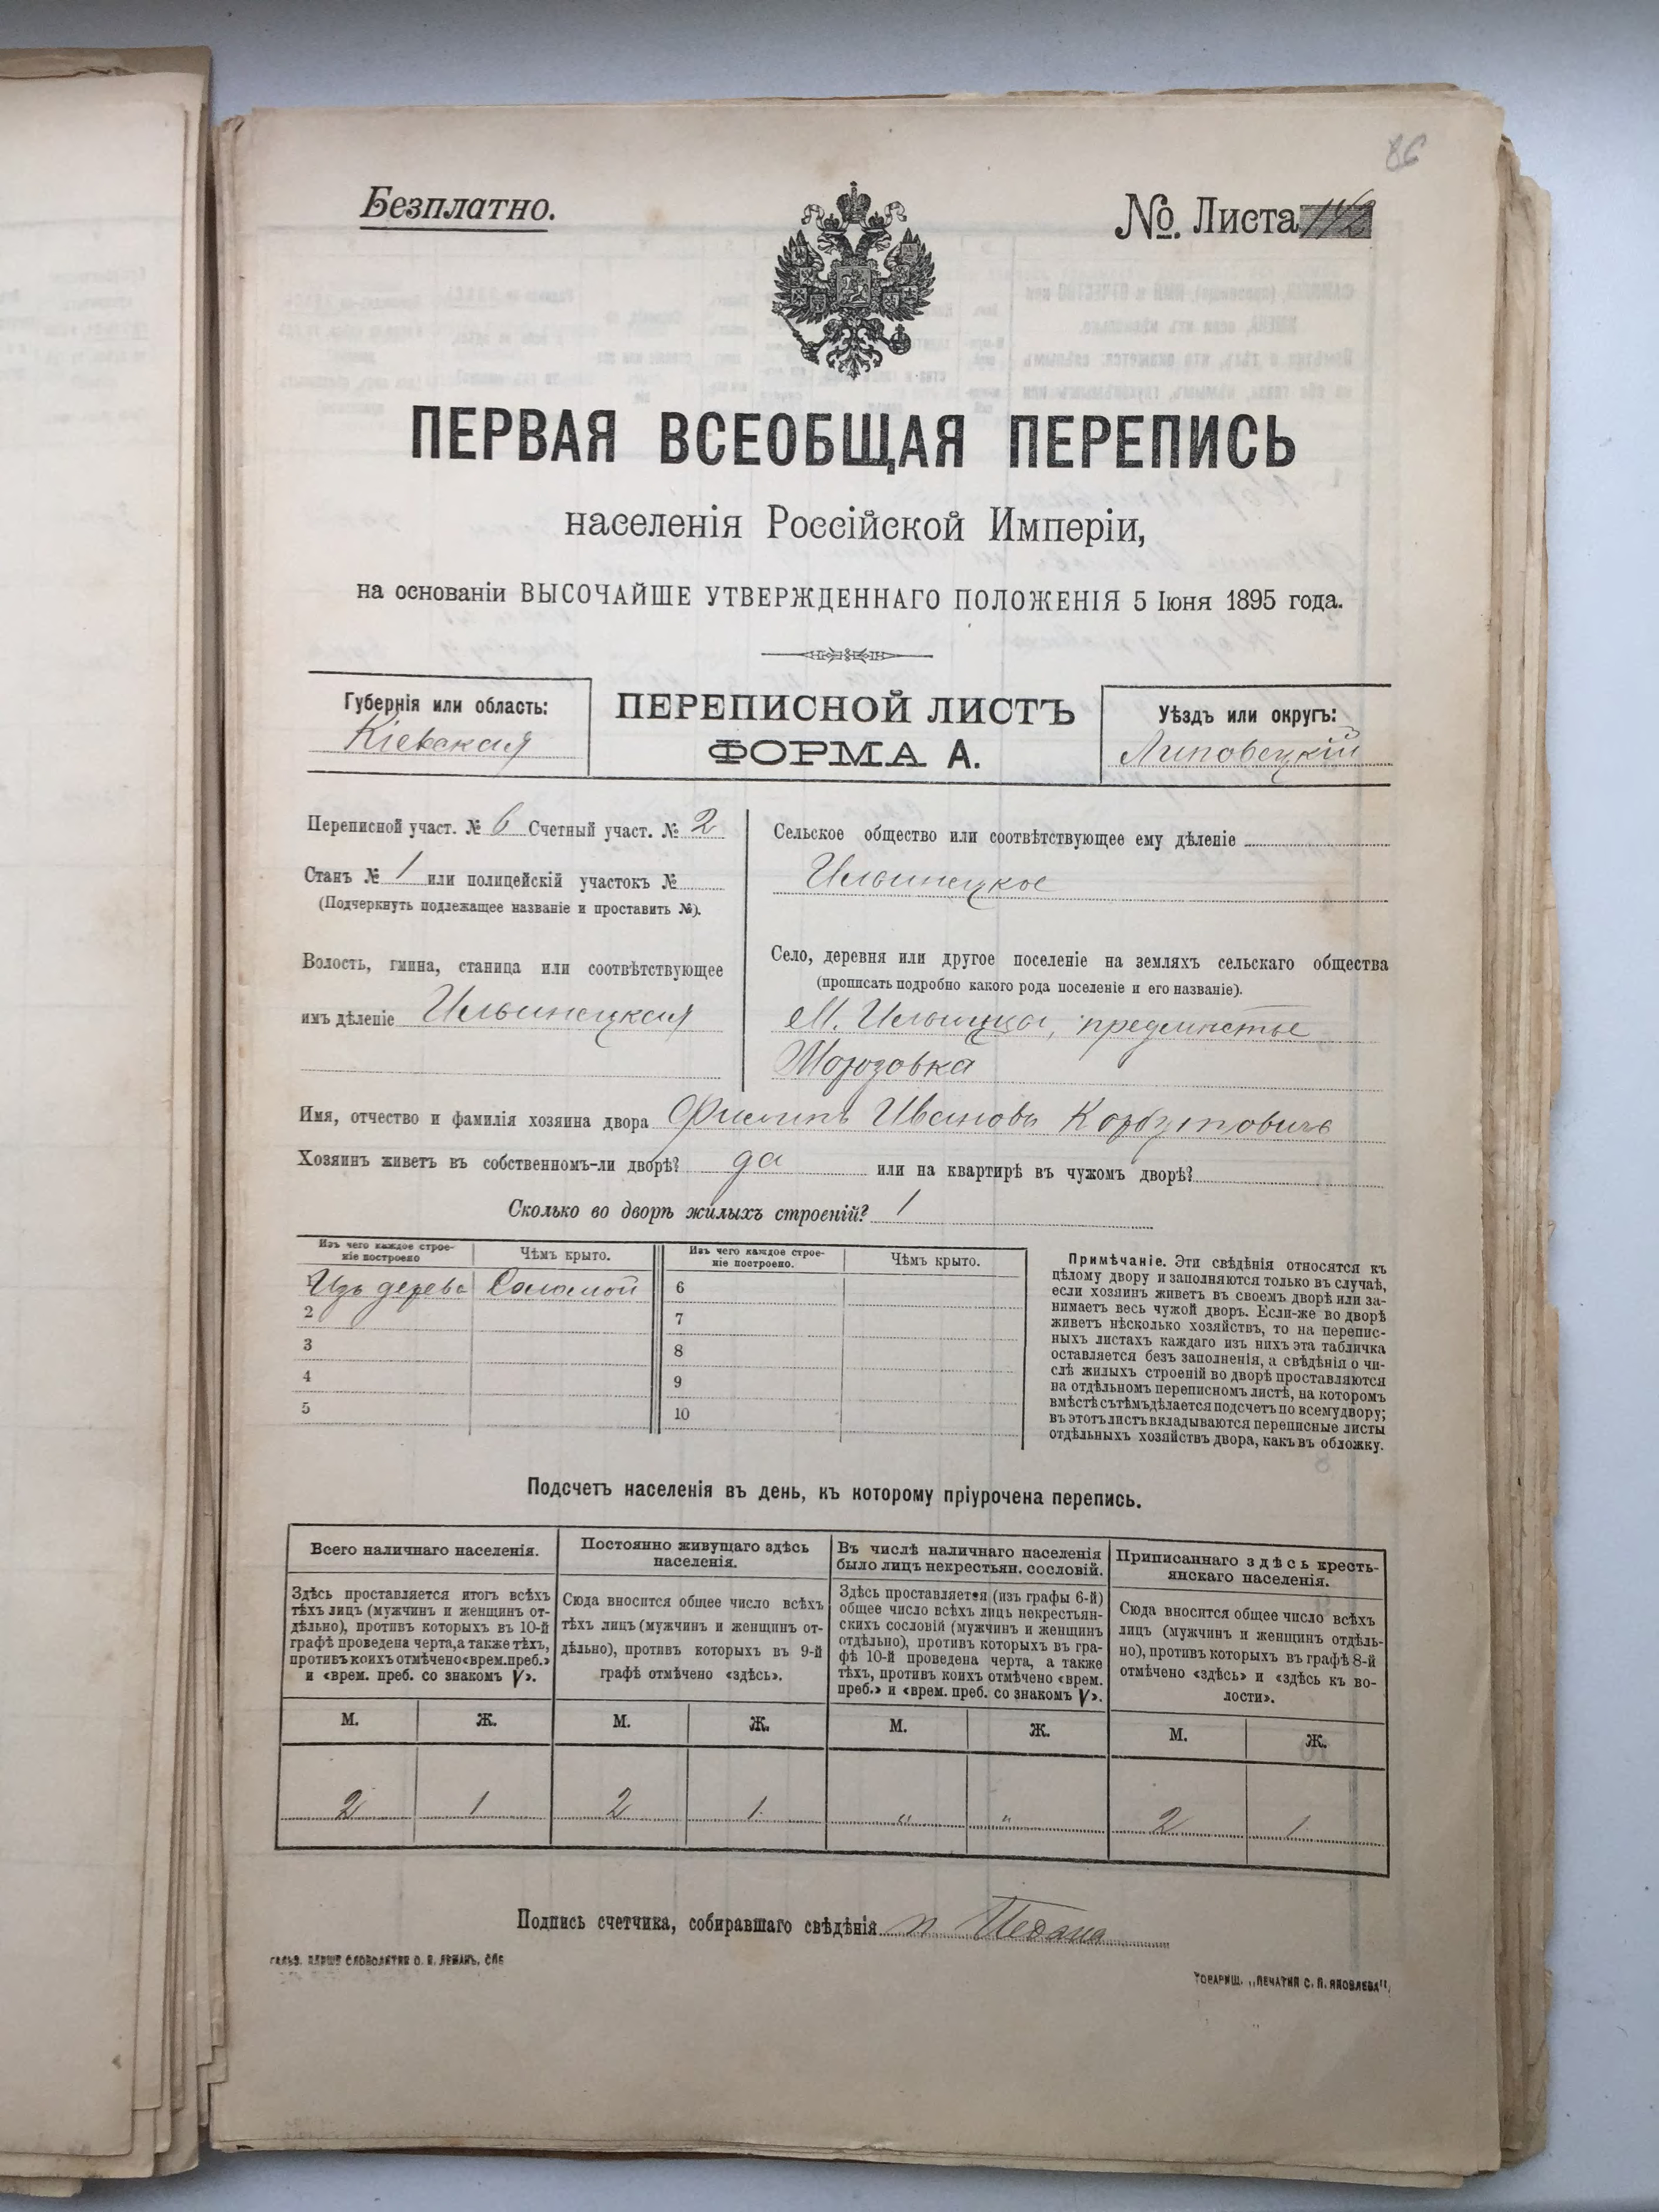 86
Безплатно.
№. Листа 142
ПЕРВАЯ ВСЕОБЩАЯ ПЕРЕПИСЬ
населенія Россійской Имперіи,
на основаніи ВЫСОЧАЙШЕ УТВЕРЖДЕННАГО ПОЛОЖЕНІЯ 5 Іюня 1895 года.
Губернія или область:
Кіевская
ПЕРЕПИСНОЙ ЛИСТЪ
ФОРМА А.
Уѣздъ или округъ:
Липовецкій
Переписной участ. № 6 Счетный участ. № 2
Станъ № 1 или полицейскій участокъ №
(Подчеркнуть подлежащее названіе и проставить №).
Волость, гмина, станица или соотвѣтствующее
имъ дѣленіе Ильинецкая
Сельское общество или соотвѣтствующее ему дѣленіе
Ильинецкое
Село, деревня или другое поселеніе на земляхъ сельскаго общества
(прописать подробно какого рода поселеніе и его названіе).
М. Ильинцы, предмѣстье
Морозовка
Имя, отчество и фамилія хозяина двора Филипъ Ивановъ Корбутовичъ
Хозяинъ живетъ въ собственномъ-ли дворѣ? да или на квартирѣ въ чужомъ дворѣ?
Сколько во дворѣ жилыхъ строеній? 1
Изъ чего каждое строе-
ніе построено
Чѣмъ крыто.
Изъ чего каждое строе-
ніе построено.
Чѣмъ крыто.
1 Изъ дерева Соломой 6
2 7
3 8
4 9
5 10
Примѣчаніе. Эти свѣдѣнія относятся къ
цѣлому двору и заполняются только въ случаѣ,
если хозяинъ живетъ въ своемъ дворѣ или за-
нимаетъ весь чужой дворъ. Если-же во дворѣ
живетъ нѣсколько хозяйствъ, то на перепис-
ныхъ листахъ каждаго изъ нихъ эта табличка
оставляется безъ заполненія, а свѣдѣнія о чи-
слѣ жилыхъ строеній во дворѣ проставляются
на отдѣльномъ переписномъ листѣ, на которомъ
вмѣстѣ съ тѣмъ дѣлается подсчетъ по всему двору;
въ этотъ листъ вкладываются переписные листы
отдѣльныхъ хозяйствъ двора, какъ въ обложку.
Подсчетъ населенія въ день, къ которому пріурочена перепись.
Всего наличнаго населенія.
Здѣсь проставляется итогъ всѣхъ
тѣхъ лицъ (мужчинъ и женщинъ от-
дѣльно), противъ которыхъ въ 10-й
графѣ проведена черта, а также тѣхъ,
противъ коихъ отмѣчено «врем. преб.»
и «врем. преб. со знакомъ V».
М. Ж.
2 1
Постоянно живущаго здѣсь
населенія.
Сюда вносится общее число всѣхъ
тѣхъ лицъ (мужчинъ и женщинъ от-
дѣльно), противъ которыхъ въ 9-й
графѣ отмѣчено «здѣсь».
М. Ж.
2 1.
Въ числѣ наличнаго населенія
было лицъ некрестьян. сословій.
Здѣсь проставляется (изъ графы 6-й)
общее число всѣхъ лицъ некрестьян-
скихъ сословій (мужчинъ и женщинъ
отдѣльно), противъ которыхъ въ гра-
фѣ 10-й проведена черта, а также
тѣхъ, противъ коихъ отмѣчено «врем.
преб.» и «врем. преб. со знакомъ V».
М. Ж.
" "
Приписаннаго здѣсь кресть-
янскаго населенія.
Сюда вносится общее число всѣхъ
лицъ (мужчинъ и женщинъ отдѣль-
но), противъ которыхъ въ графѣ 8-й
отмѣчено «здѣсь» и «здѣсь къ во-
лости».
М. Ж.
2 1.
Подпись счетчика, собиравшаго свѣдѣнія
ТОВАРИЩ. „ПЕЧАТНЯ С. П. ЯКОВЛЕВА"